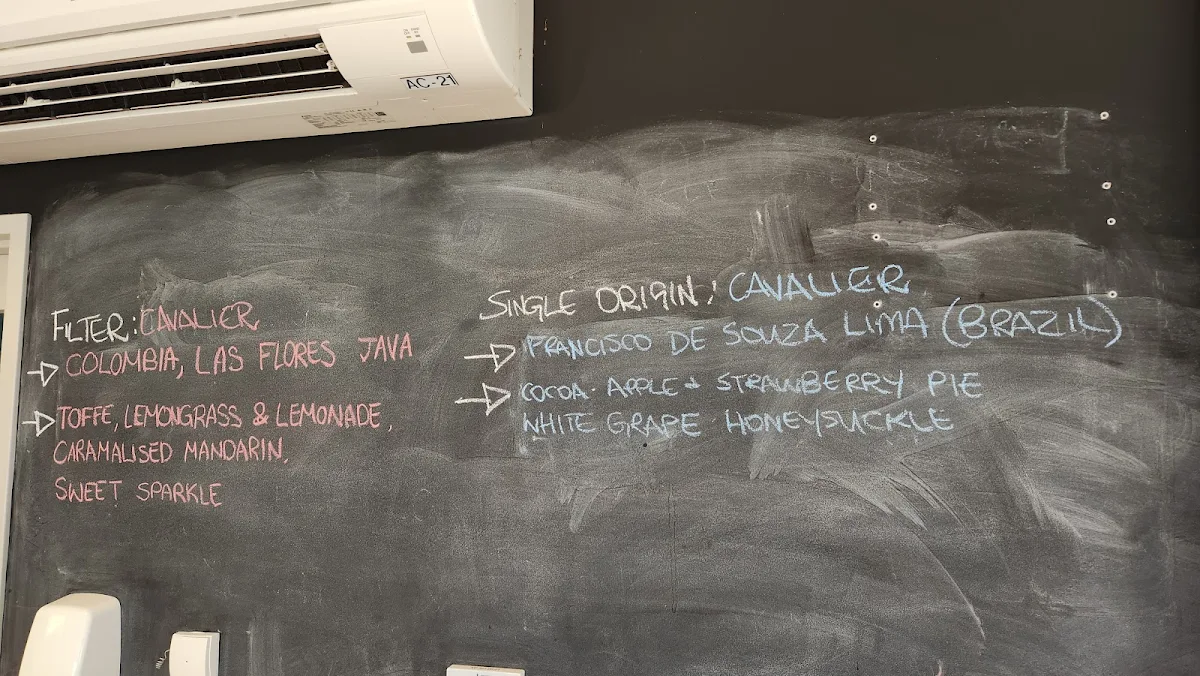 AC-21
FILTER: CAVALIER
COLOMBIA, LAS FLORES JAVA
TOFFE, LEMONGRASS & LEMONADE,
CARAMALISED MANDARIN,
SWEET SPARKLE
SINGLE ORIGIN: CAVALIER
FRANCISCO DE SOUZA LIMA (BRAZIL)
COCOA · APPLE & STRAWBERRY PIE
WHITE GRAPE · HONEYSUCKLE